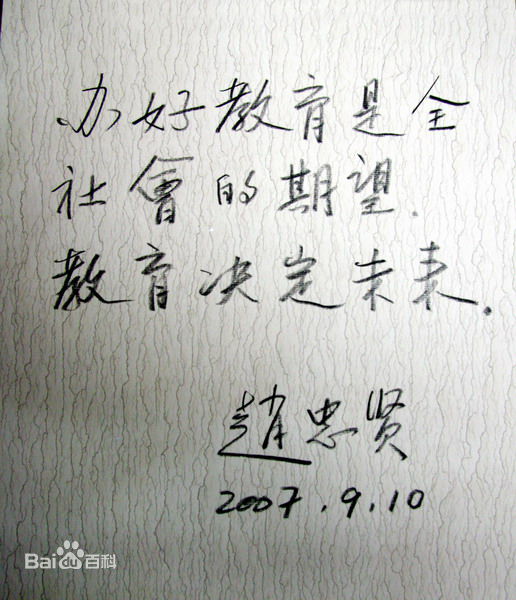 办好教育是全
社會的期望.
教育决定未来.
趙忠贤
2007.9.10
Bai百科